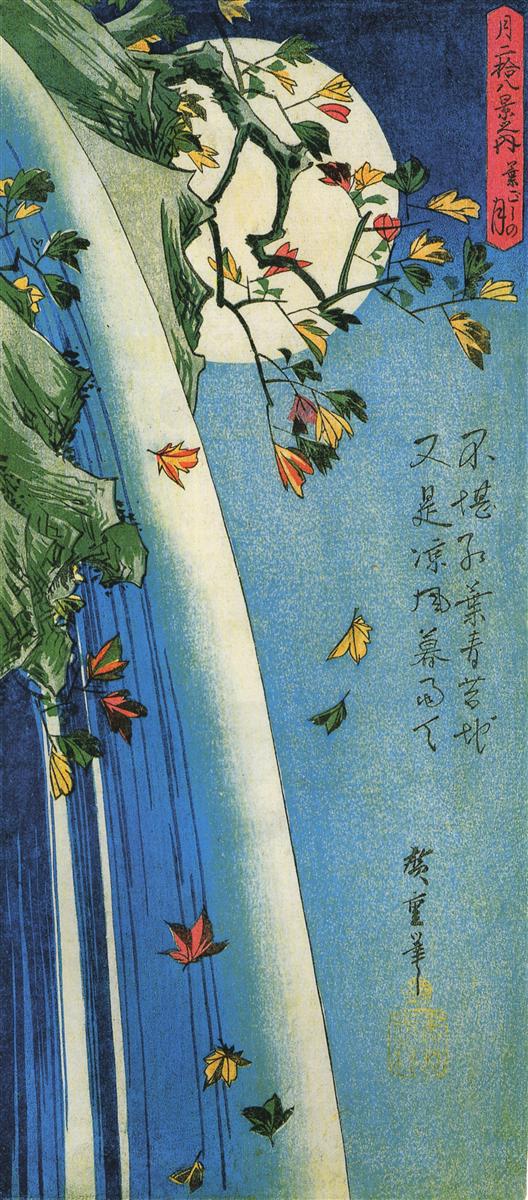 月二拾八景之内 葉ごしの月
不堪紅葉青苔地
又是凉風暮雨天
廣重筆